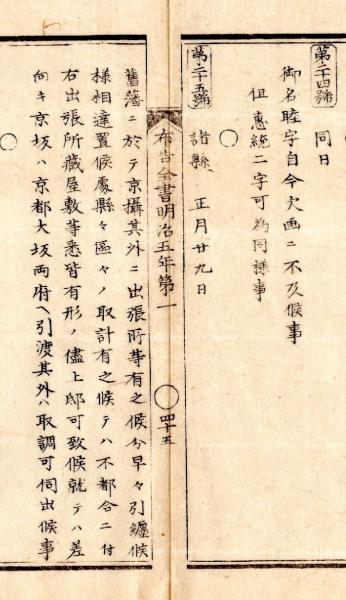 第二十四號 同日
御名睦字自今欠画ニ不及候事
但惠統二字可為同様事
第二十五號 諸縣 正月廿九日
布告全書明治五年第一 四十五
舊藩ニ於テ京攝其外ニ出張所等有之候分早々引纏候
様相達置候處縣々區々ノ取計有之候テハ不都合ニ付
右出張所藏屋敷等悉皆有形ノ儘上邸可致候就テハ差
向キ京坂ハ京都大坂両府ヘ引渡其外ハ取調可伺出候事